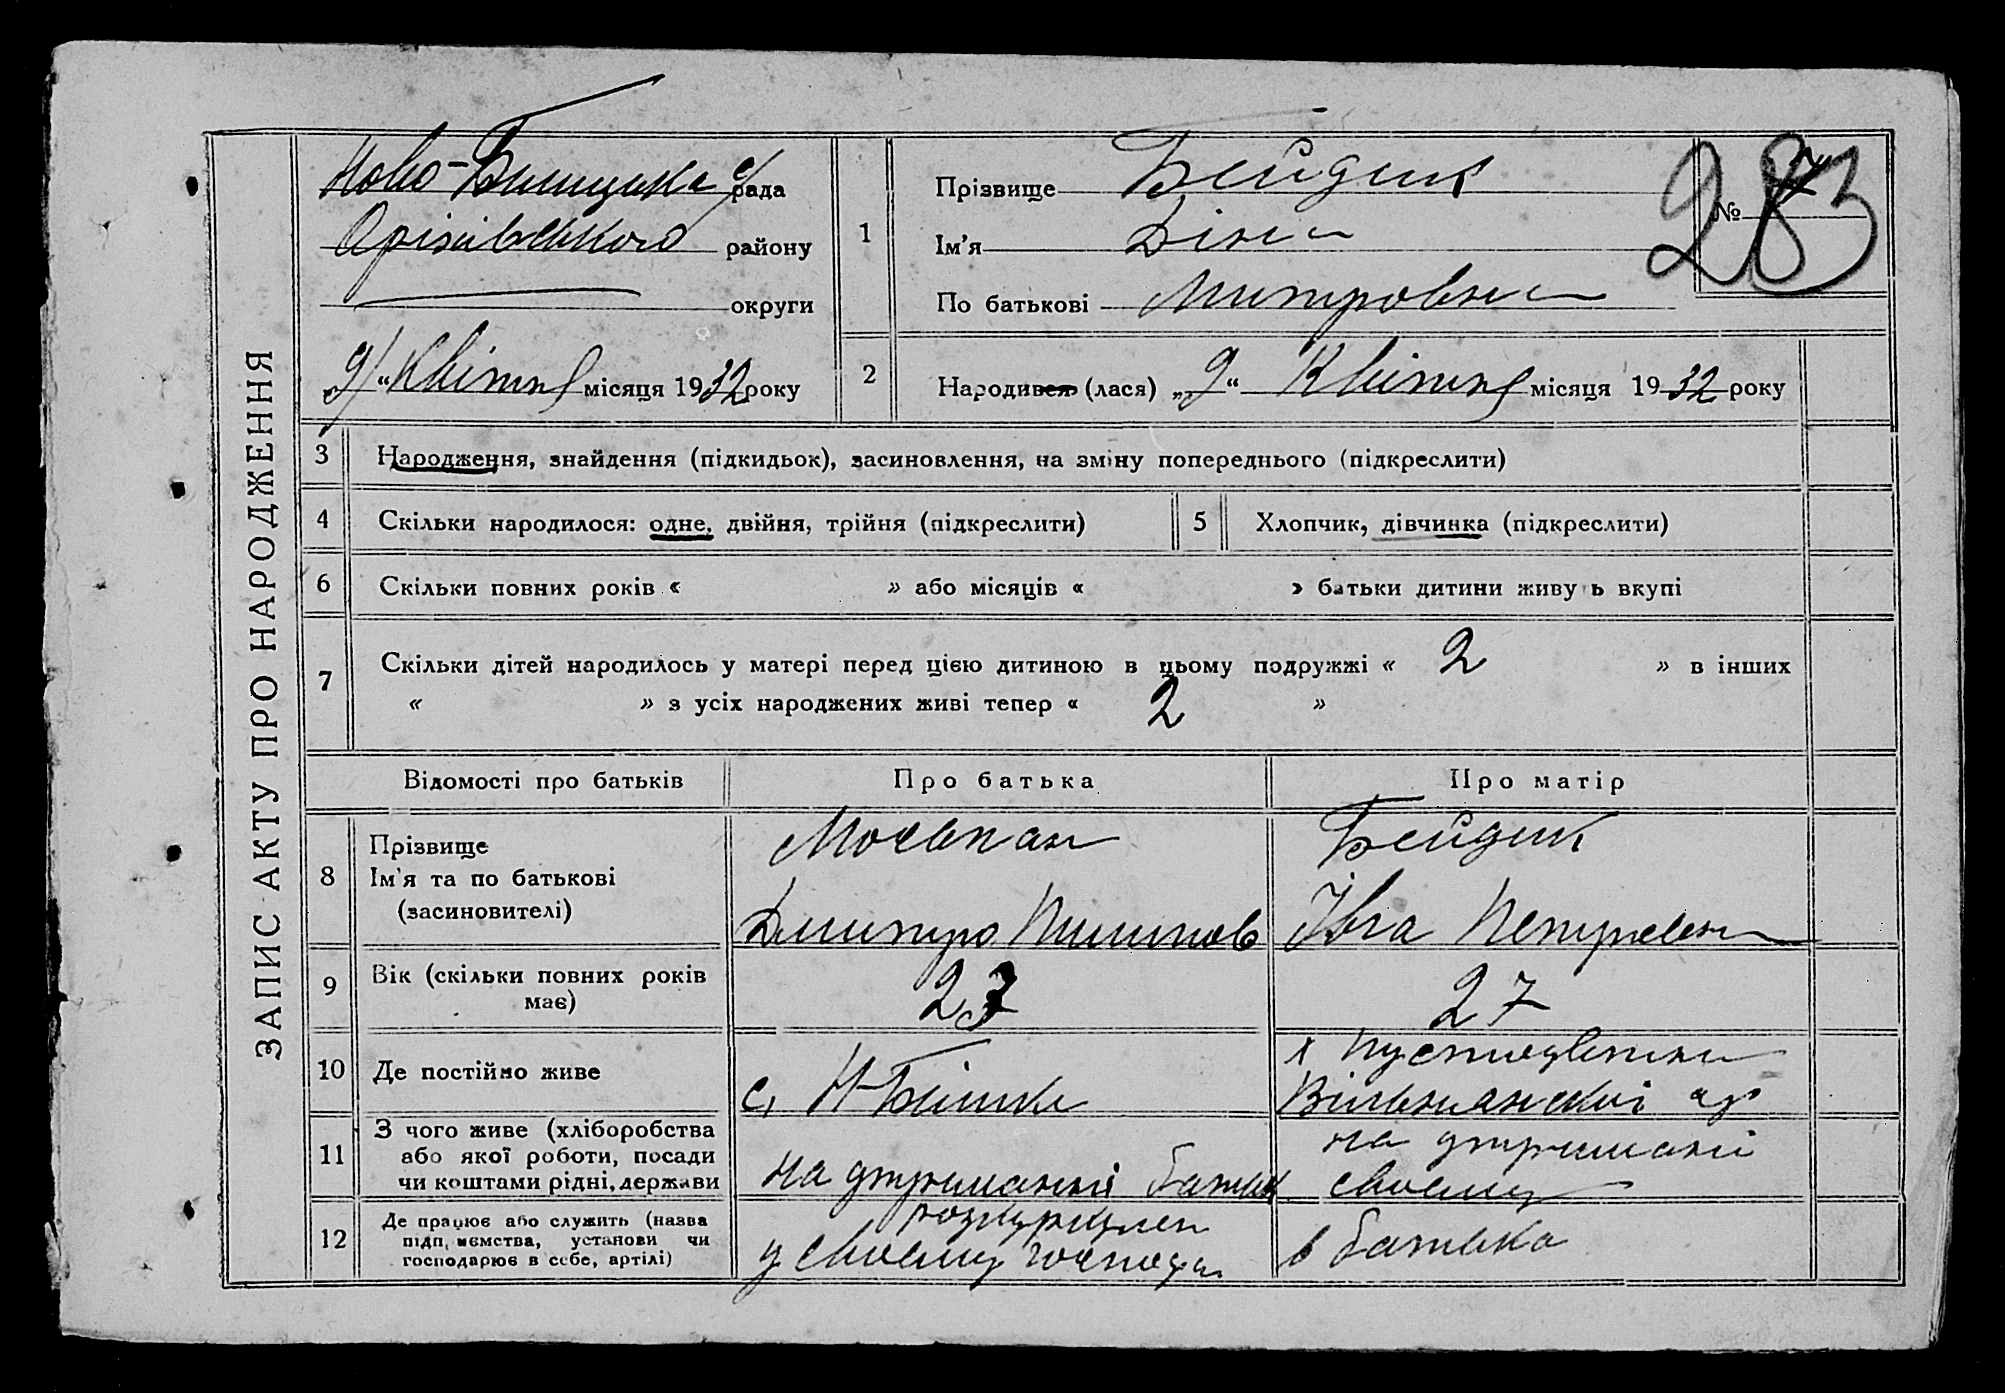 ЗАПИС АКТУ ПРО НАРОДЖЕННЯ
с/рада
району
округи
„9“ Квітня місяця 1932 року
1
Прізвище Бейдик
Ім'я Діна
По батькові Митровна
№
283
2
Народився (лася) „9“ Квітня місяця 1932 року
3
Народження, знайдення (підкидьок), засиновлення, на зміну попереднього (підкреслити)
4
Скільки народилося: одне, двійня, трійня (підкреслити)
5
Хлопчик, дівчинка (підкреслити)
6
Скільки повних років « » або місяців « » батьки дитини живуть вкупі
7
Скільки дітей народилось у матері перед цією дитиною в цьому подружжі « 2 » в інших
« » з усіх народжених живі тепер « 2 »
Відомості про батьків
Про батька
Про матір
8
Прізвище
Ім'я та по батькові
(засиновителі)
Дмитро
Бейдик
Івга Петровна
9
Вік (скільки повних років
має)
27
10
Де постійно живе
с. Н-
х
11
З чого живе (хліборобства
або якої роботи, посади
чи коштами рідні, держави
на утриманні батька
на утримані
своему
12
Де працює або служить (назва
підприємства, установи чи
господарює в себе, артілі)
у своему
в батька